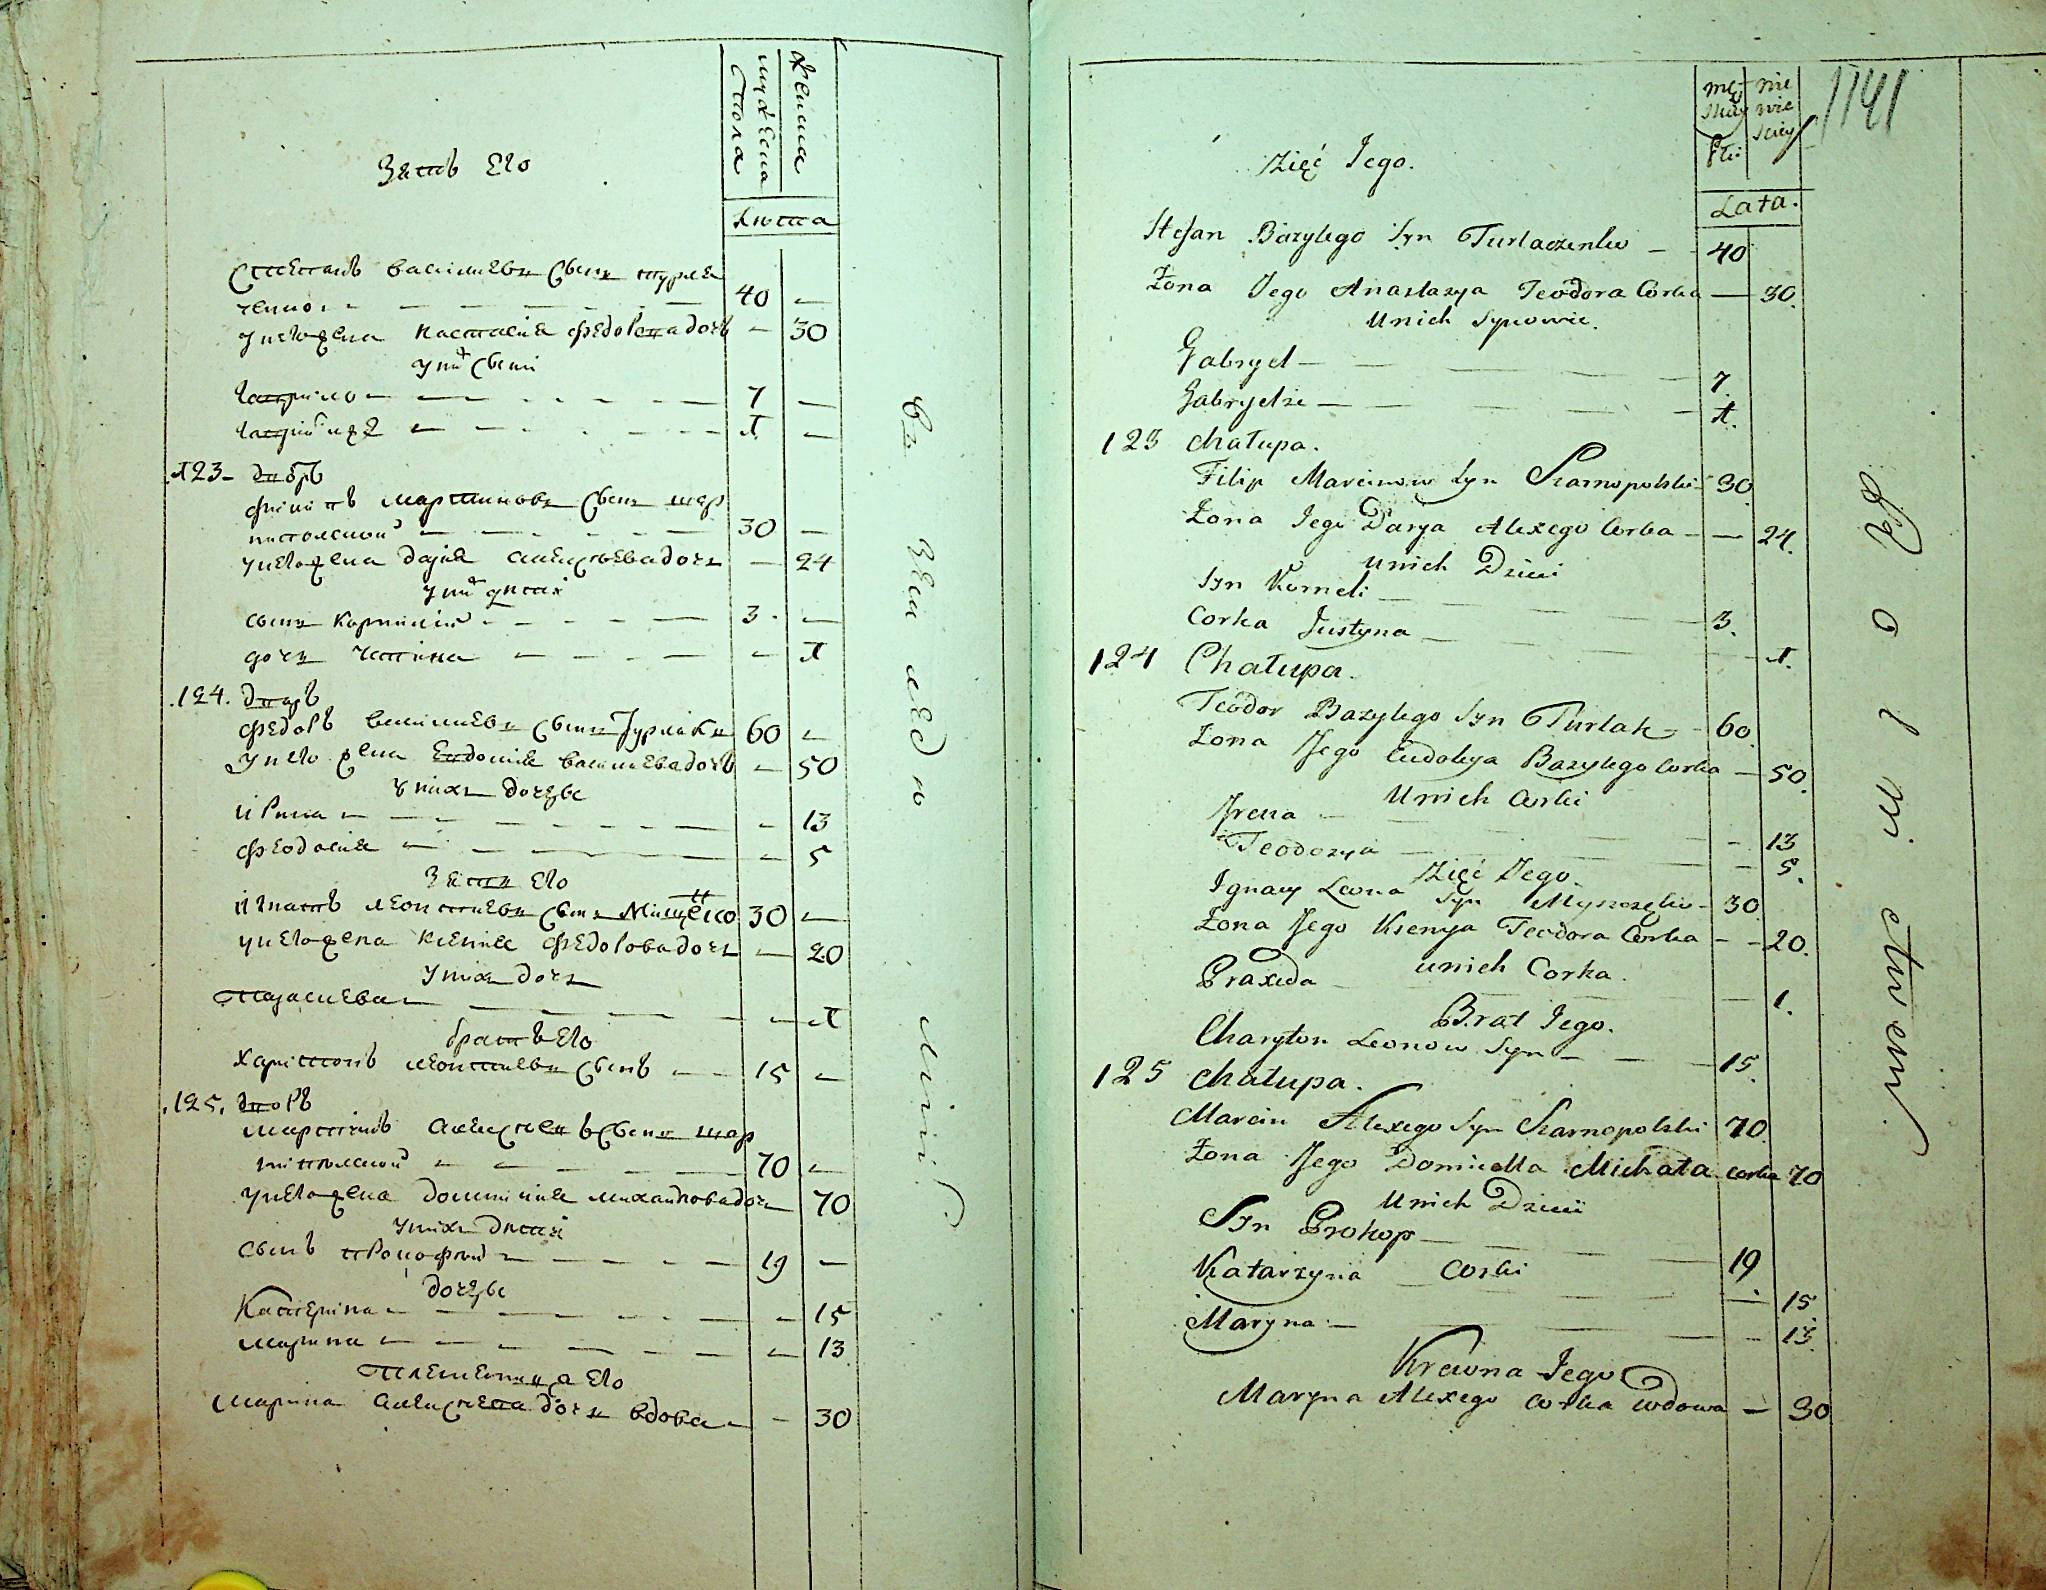 мужеска пола
женска
Зять Его
Люта
Степанъ василиевъ Сынъ турла
ченко 40 —
у него жена настасия федорова дочь — 30
у них Сыни
гаврило 7 —
1 —
123 дворъ
филипъ мартиновъ Сынъ шар
нополской 30 —
у него жена дария алексеева дочъ — 24
у них дети
сынъ корнилий 3 —
дочъ — 1
124. дворъ
федоръ василиевъ Сынъ Турлакъ 60 —
у него жена Евдокия василиева дочъ — 50
у нихъ дочери
ирина — 13
феодосия — 5
Зять Его
игнатъ леонтиевъ Сынъ 30 —
у него жена ксения федорова дочъ — 20
у нихъ дочъ
— 1
братъ Его
харитонъ леонтиевъ Сынъ 15 —
125. дворъ
мартинъ алексеевъ Сынъ шар
нополской 70 —
у него жена домникия михаилова дочъ 70
у нихъ дети
Сынъ прокофий 19 —
дочери
Катерина — 15
марина — 13
племеница Его
марина алексеева дочъ вдова — 30
męskiey płci
niewieściey
1141
Zięć Jego.
Lata.
Stefan Bazylego Syn Turlaczenko — 40
Żona Jego Anastazya Teodora Corka — 30.
Unich Synowie.
Gabryel — 7.
1.
123 Chałupa.
Filip Marcinow Syn Szarnopolski 30
Żona Jego Darya Alexego Corka — 24.
Unich Dzieci
Syn Korneli — 3.
Corka Justyna — 1.
124 Chałupa.
Teodor Bazylego Syn Turlak — 60
Żona Jego Eudokya Bazylego Corka — 50.
Unich Corki
Irena — 13
Teodozya — 5.
Zięć Jego.
Ignacy Leona Syn 30
Żona Jego Ksenya Teodora Corka — 20.
unich Corka.
Praxeda — 1.
Brat Jego.
Charyton Leonow Syn — 15.
125 Chałupa.
Marcin Alexego Syn Szarnopolski 70.
Żona Jego Domicella Michała corka 70
Unich Dzieci
Syn Prokop — 19.
Corki
Katarzyna — 15
Maryna — 13.
Krewna Jego
Maryna Alexego Corka wdowa — 30